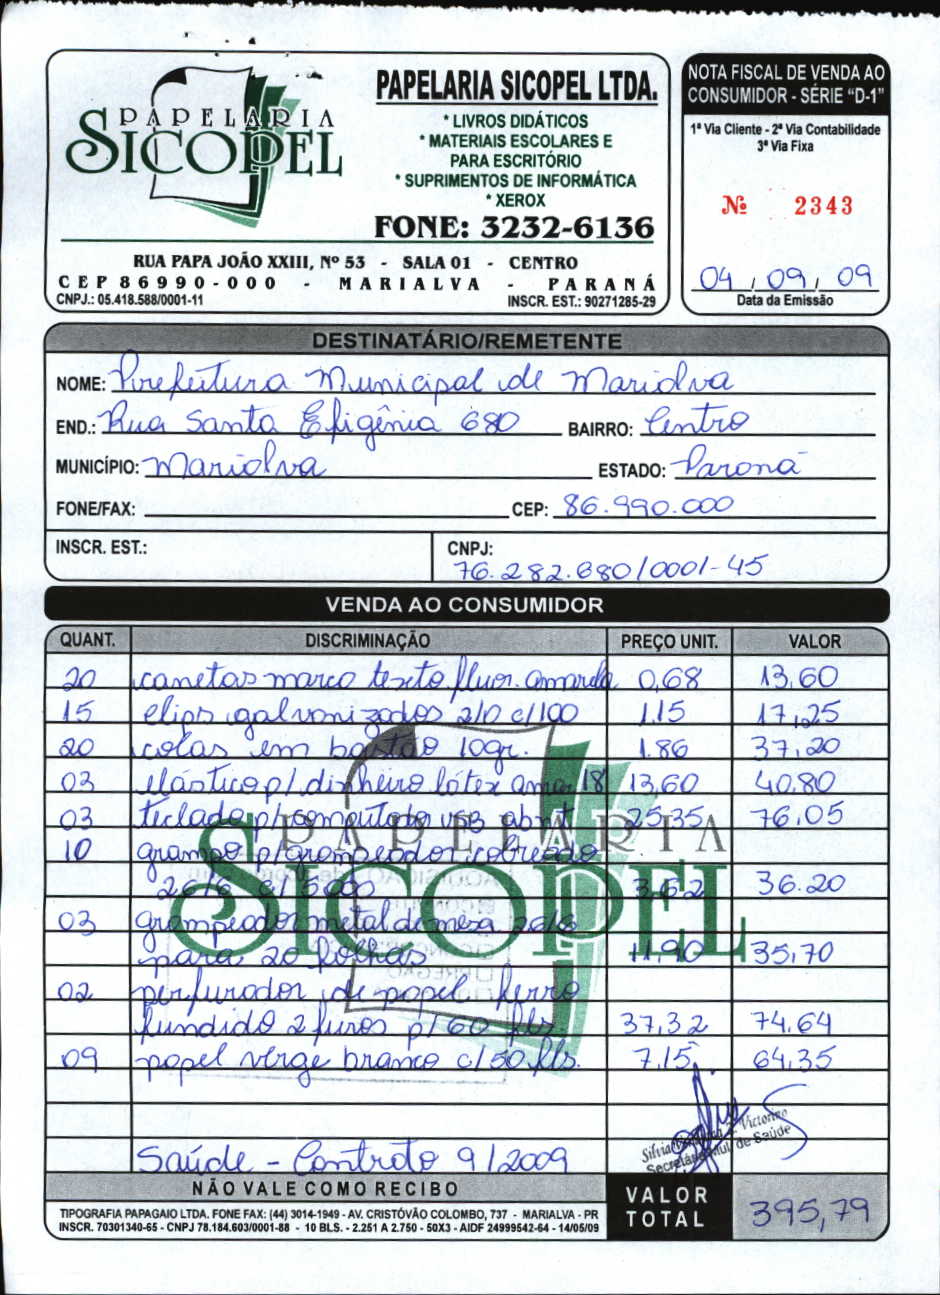 PAPELARIA
SICOPEL
PAPELARIA SICOPEL LTDA.
* LIVROS DIDÁTICOS
* MATERIAIS ESCOLARES E
PARA ESCRITÓRIO
* SUPRIMENTOS DE INFORMÁTICA
* XEROX
FONE: 3232-6136
RUA PAPA JOÃO XXIII, Nº 53 - SALA 01 - CENTRO
CEP 86990-000 - MARIALVA - PARANÁ
CNPJ.: 05.418.588/0001-11 INSCR. EST.: 90271285-29
NOTA FISCAL DE VENDA AO
CONSUMIDOR - SÉRIE "D-1"
1ª Via Cliente - 2ª Via Contabilidade
3ª Via Fixa
Nº 2343
04/09/09
Data da Emissão
DESTINATÁRIO/REMETENTE
NOME: Prefeitura Municipal de Marialva
END.: Rua Santa Efigênia 680 BAIRRO: Centro
MUNICÍPIO: Marialva ESTADO: Paraná
FONE/FAX: CEP: 86.990.000
INSCR. EST.: CNPJ:
76.282.680/0001-45
VENDA AO CONSUMIDOR
QUANT. DISCRIMINAÇÃO PREÇO UNIT. VALOR
20 canetas marca texto fluor. amarela 0,68 13,60
15 clips galvanizados 2/0 c/100 1.15 17,25
20 colas em bastão 10gr. 1.86 37,20
03 elástico p/ dinheiro látex amar 18 13,60 40,80
03 teclado p/ computado usb abnt 25,35 76,05
10 grampo p/ grampeador cobreado
26/6 c/5000 3,62 36.20
03 grampeador metal de mesa 26/6
para 20 folhas 11,90 35,70
02 perfurador de papel ferro
fundido 2 furos p/60 fls. 37,32 74,64
09 papel verge branco c/50 fls. 7,15 64,35
PAPELARIA
SICOPEL
Silvia Victorino
Secretária Mun. de Saúde
Saúde - Contrato 9/2009
NÃO VALE COMO RECIBO
VALOR
TOTAL 395,79
TIPOGRAFIA PAPAGAIO LTDA. FONE FAX: (44) 3014-1949 - AV. CRISTÓVÃO COLOMBO, 737 - MARIALVA - PR
INSCR. 70301340-65 - CNPJ 78.184.603/0001-88 - 10 BLS. - 2.251 A 2.750 - 50X3 - AIDF 24999542-64 - 14/05/09